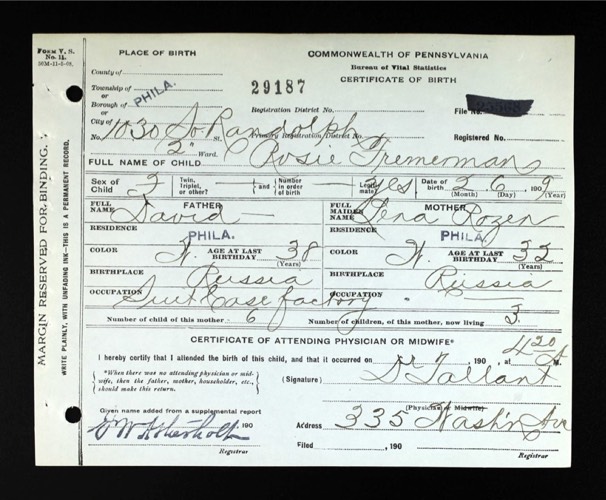 FORM V. S.
No. 11.
PLACE OF BIRTH
COMMONWEALTH OF PENNSYLVANIA
Bureau of Vital Statistics
CERTIFICATE OF BIRTH
County of
Township of
or
Borough of PHILA.
or
City of
29187
Registration District No.
File No.
No. 1030 So. Randolph St. Primary Registration District No.
Registered No.
2" Ward.
FULL NAME OF CHILD Rosie Tremerman
Sex of Child F
Twin, Triplet, or other?
and
Number in order of birth
Legitimate? yes
Date of birth 2 6 1909
(Month) (Day) (Year)
FATHER
FULL NAME David
MOTHER
FULL MAIDEN NAME Lena Rozen
RESIDENCE PHILA.
RESIDENCE PHILA.
COLOR W. AGE AT LAST BIRTHDAY 38 (Years)
COLOR W. AGE AT LAST BIRTHDAY 32 (Years)
BIRTHPLACE Russia
BIRTHPLACE Russia
OCCUPATION Suit Case factory
OCCUPATION
Number of child of this mother 6
Number of children, of this mother, now living 3
CERTIFICATE OF ATTENDING PHYSICIAN OR MIDWIFE*
I hereby certify that I attended the birth of this child, and that it occurred on 190 , at 4 20 A M.
*When there was no attending physician or midwife, then the father, mother, householder, etc., should make this return.
(Signature) Dr Tallant
(Physician or Midwife)
Given name added from a supplemental report
190
Address 335 Wash'n Ave
Filed , 190
Registrar
Registrar
MARGIN RESERVED FOR BINDING.
WRITE PLAINLY, WITH UNFADING INK—THIS IS A PERMANENT RECORD.